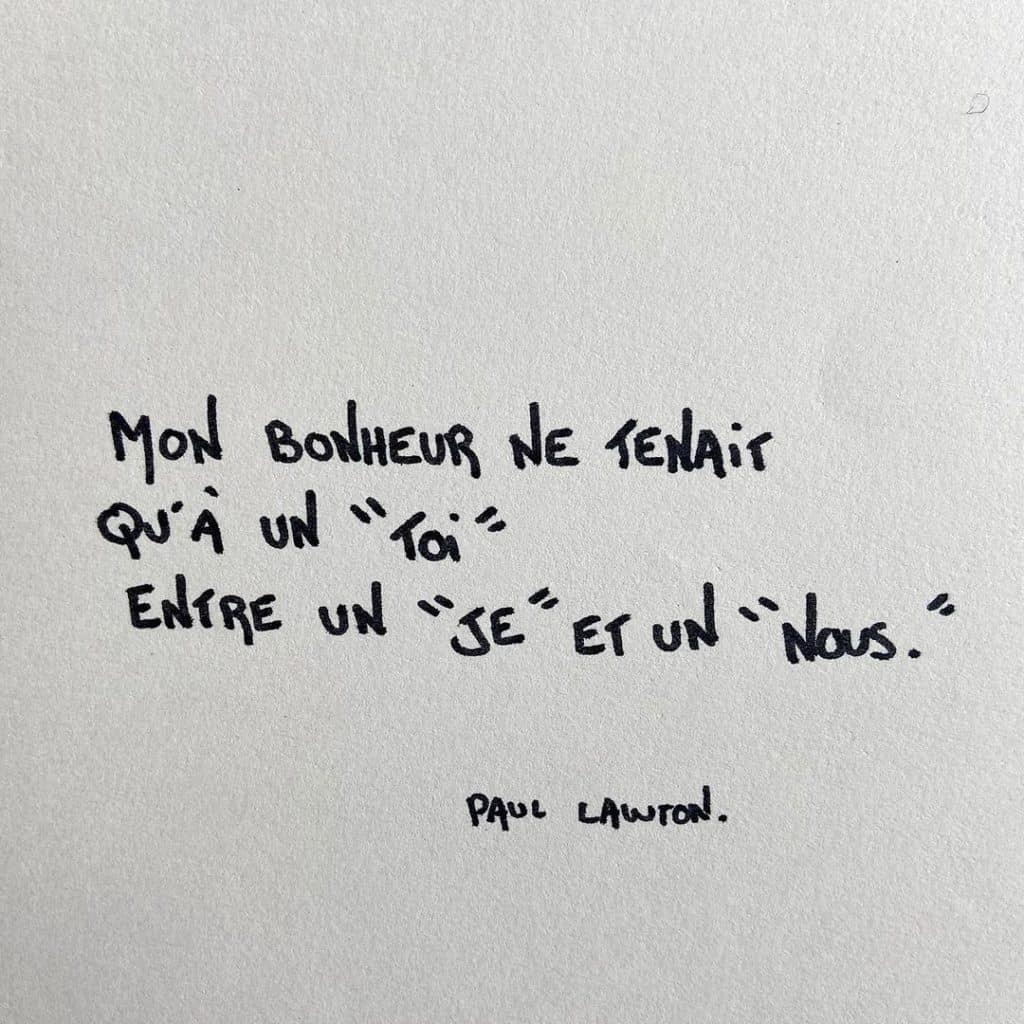 MON BONHEUR NE TENAiT
QU'À UN "Toi"
ENTRE UN "JE" ET UN "Nous."
PAUL LAWTON.